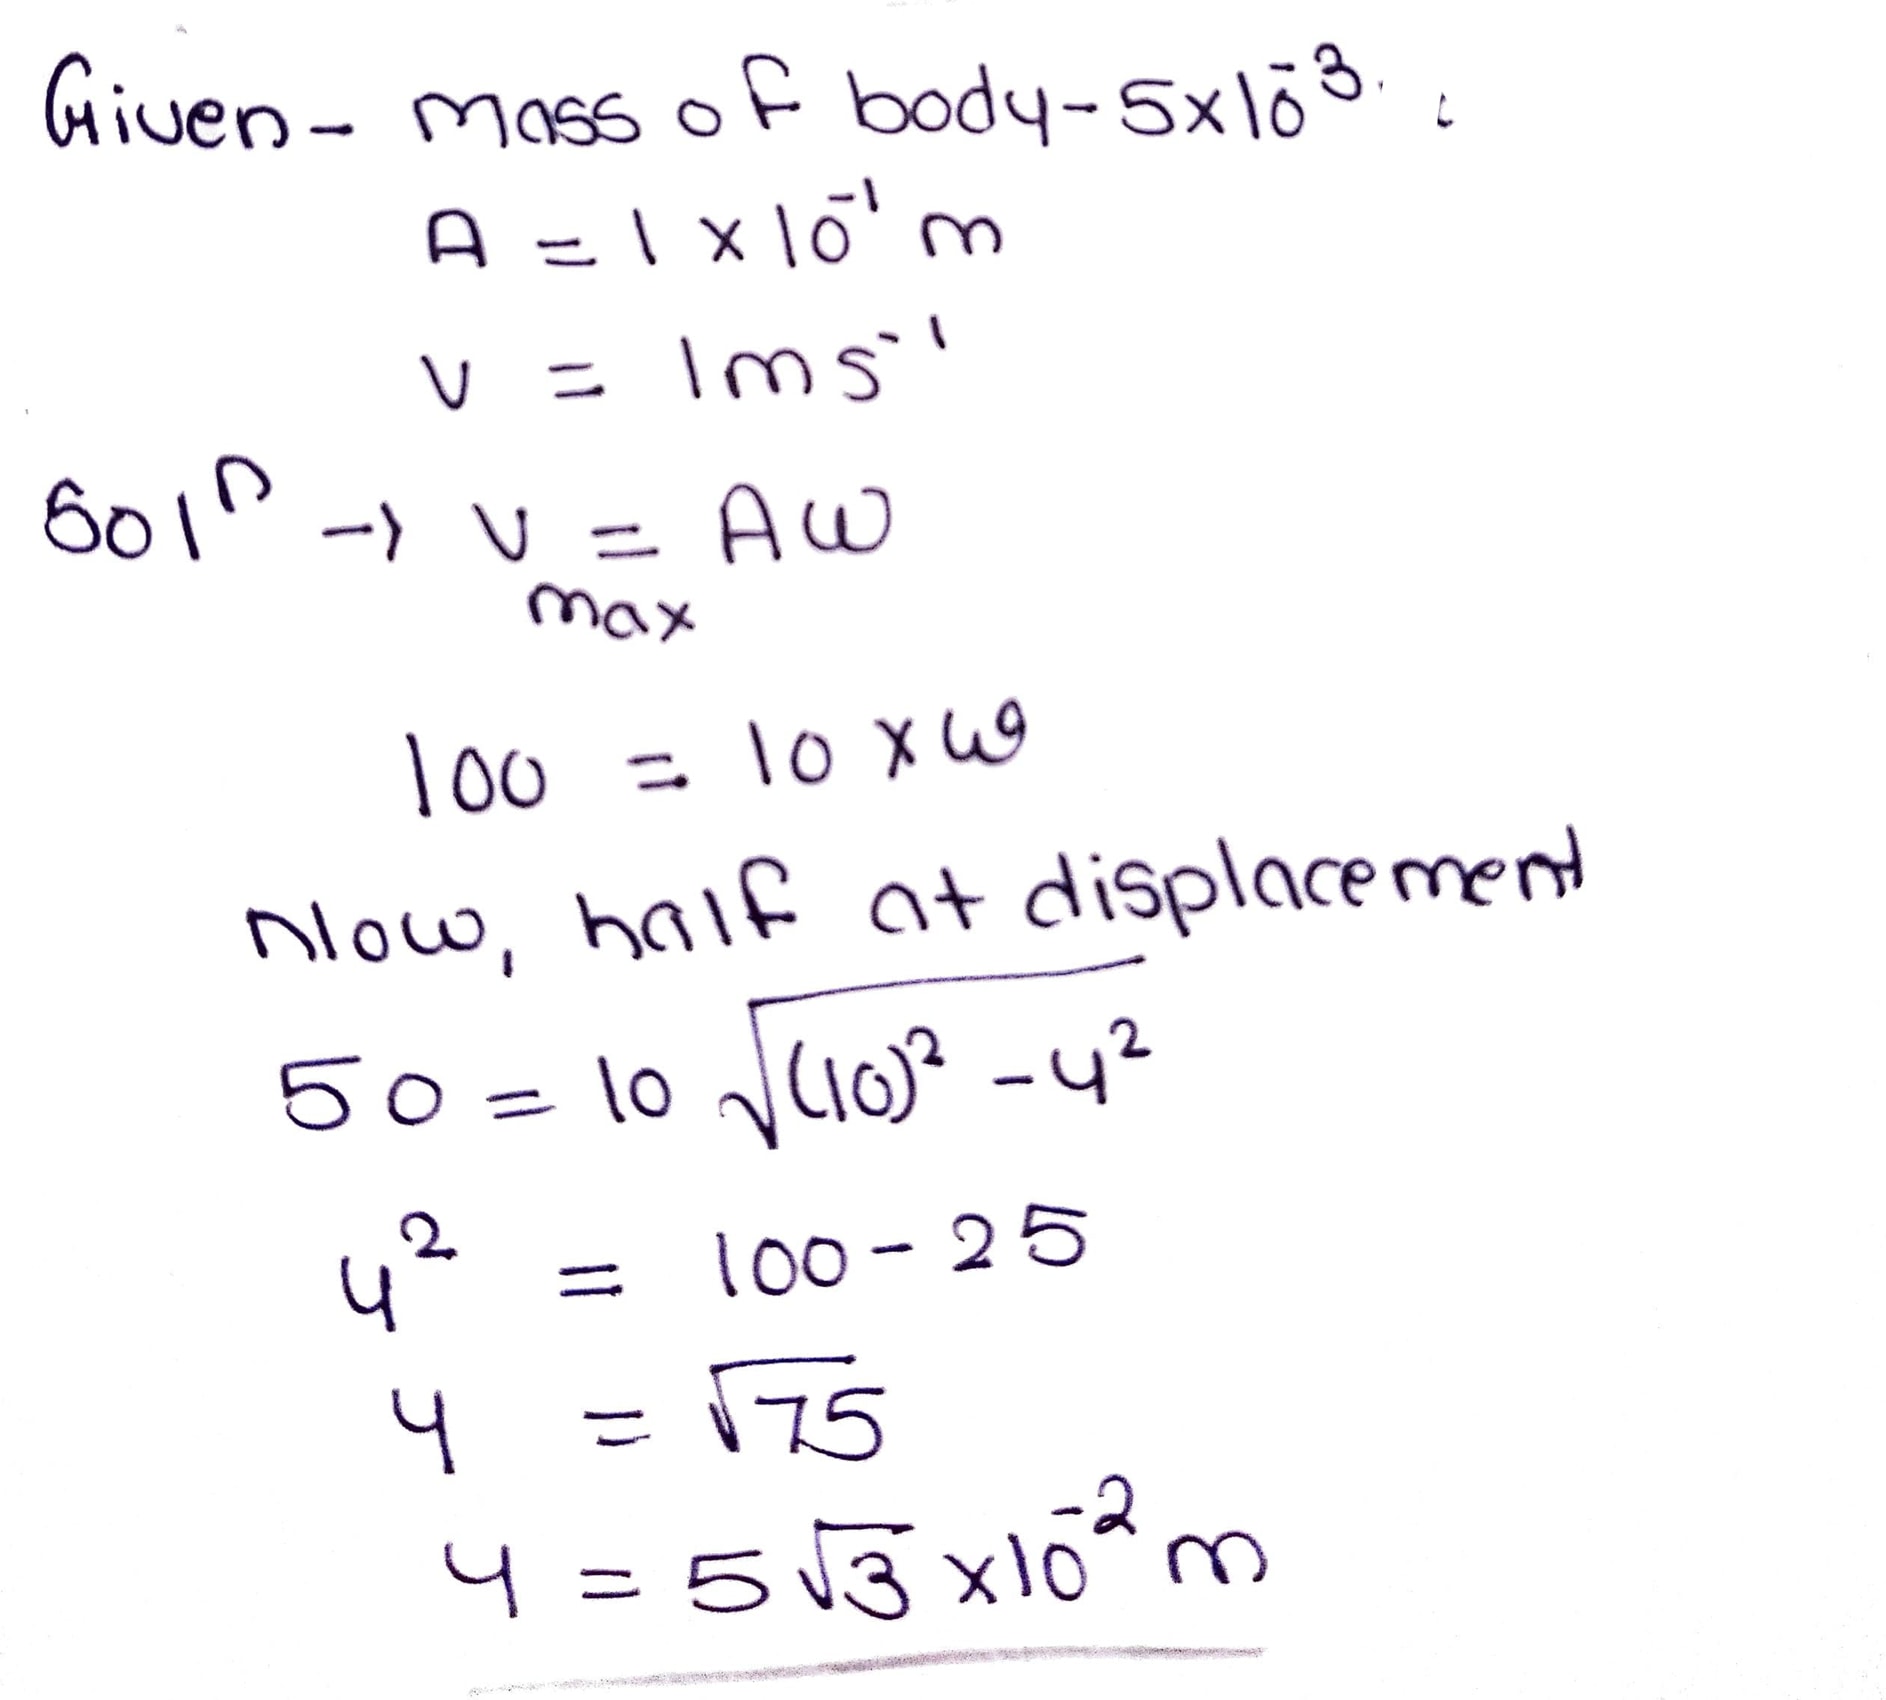 Given - Mass of body - 5x10⁻³.
A = 1 x 10⁻¹ m
v = 1ms⁻¹
Solⁿ → v = Aω
max
100 = 10 x ω
Now, half at displacement
50 = 10 √(10)² - y²
y² = 100 - 25
y = √75
y = 5√3 x10⁻² m